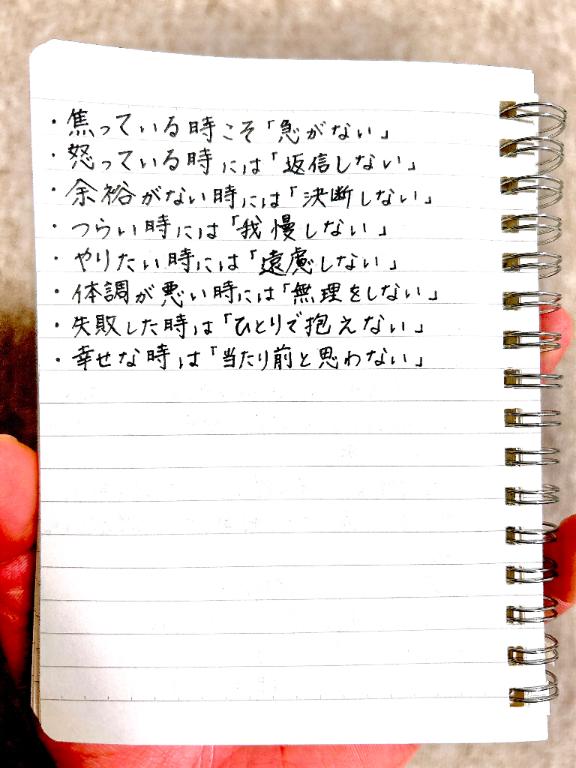 ・焦っている時こそ「急がない」
・怒っている時には「返信しない」
・余裕がない時には「決断しない」
・つらい時には「我慢しない」
・やりたい時には「遠慮しない」
・体調が悪い時には「無理をしない」
・失敗した時は「ひとりで抱えない」
・幸せな時は「当たり前と思わない」